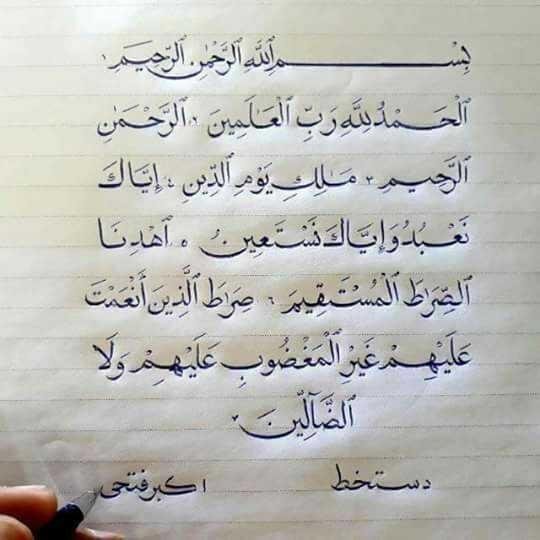 بِسْمِ اللَّهِ الرَّحْمٰنِ الرَّحِيمِ ١
اَلْحَمْدُ لِلَّهِ رَبِّ الْعَالَمِينَ ٢ اَلرَّحْمٰنِ
الرَّحِيمِ ٣ مَالِكِ يَوْمِ الدِّينِ ٤ إِيَّاكَ
نَعْبُدُ وَإِيَّاكَ نَسْتَعِينُ ٥ اِهْدِنَا
الصِّرَاطَ الْمُسْتَقِيمَ ٦ صِرَاطَ الَّذِينَ أَنْعَمْتَ
عَلَيْهِمْ غَيْرِ الْمَغْضُوبِ عَلَيْهِمْ وَلَا
الضَّآلِّينَ ٧
دستخط اکبر فتحی